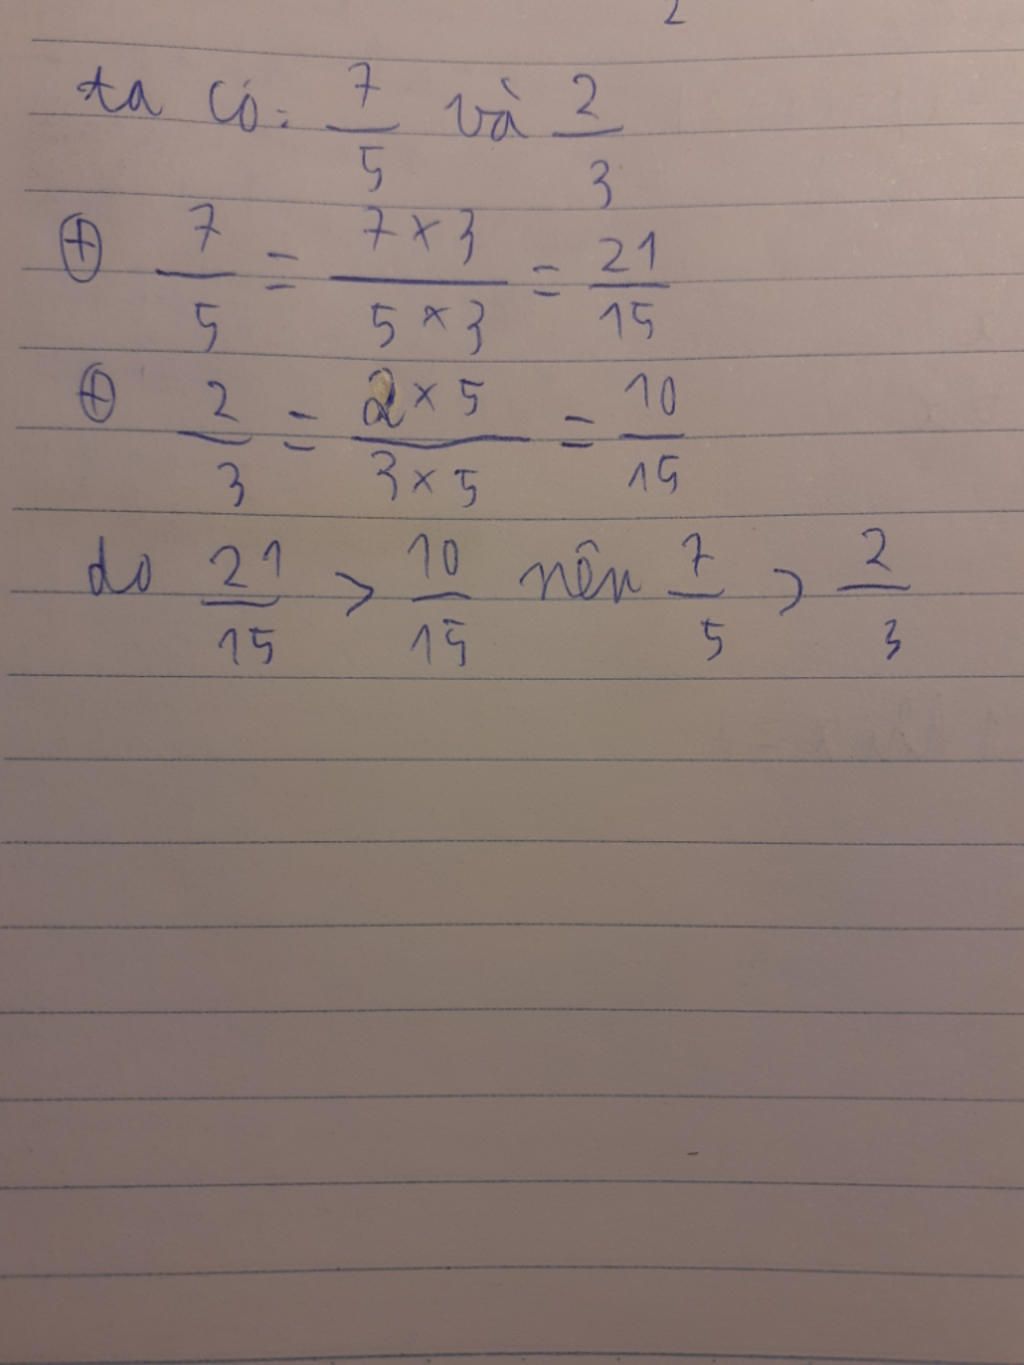 2
ta có: 7/5 và 2/3
⊕ 7/5 = 7 × 3/5 × 3 = 21/15
⊕ 2/3 = 2 × 5/3 × 5 = 10/15
do 21/15 > 10/15 nên 7/5 > 2/3